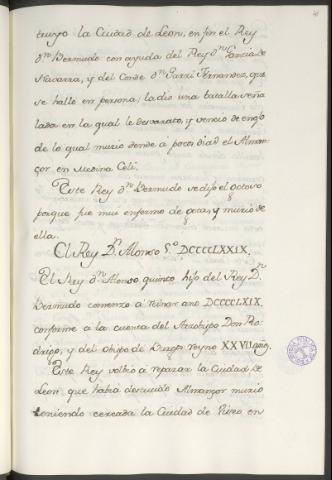 truyo la Ciudad de Leon, en fin el Rey
Dn. Bermudo con ayuda del Rey Dn. Garcia de
Navarra, y del Conde Dn. Garci Fernandez, que
se hallo en persona, la dio una batalla seña
lada en la qual le desbarato, y vencio de enojo
de lo qual murio donde a pocos dias el Alman
çor en Medina Celi.
Este Rey Dn. Bermudo se dijo el gotoso
porque fue mui enfermo de gota, y murio de
ella.
El Rey Dn. Alonso 5.º DCCCCLXXIX,
El Rey Dn. Alonso, quinto hijo del Rey Dn.
Bermudo comenzo á reinar ano DCCCCLXIX,
conforme a la cuenta del Arzobispo Don Ro
drigo, y del obispo de Burgos reyno XXVII años.
Este Rey volbio á reparar la Ciudad de
Leon, que habia destruido Almançor murio
teniendo cercada la Ciudad de Viseo en